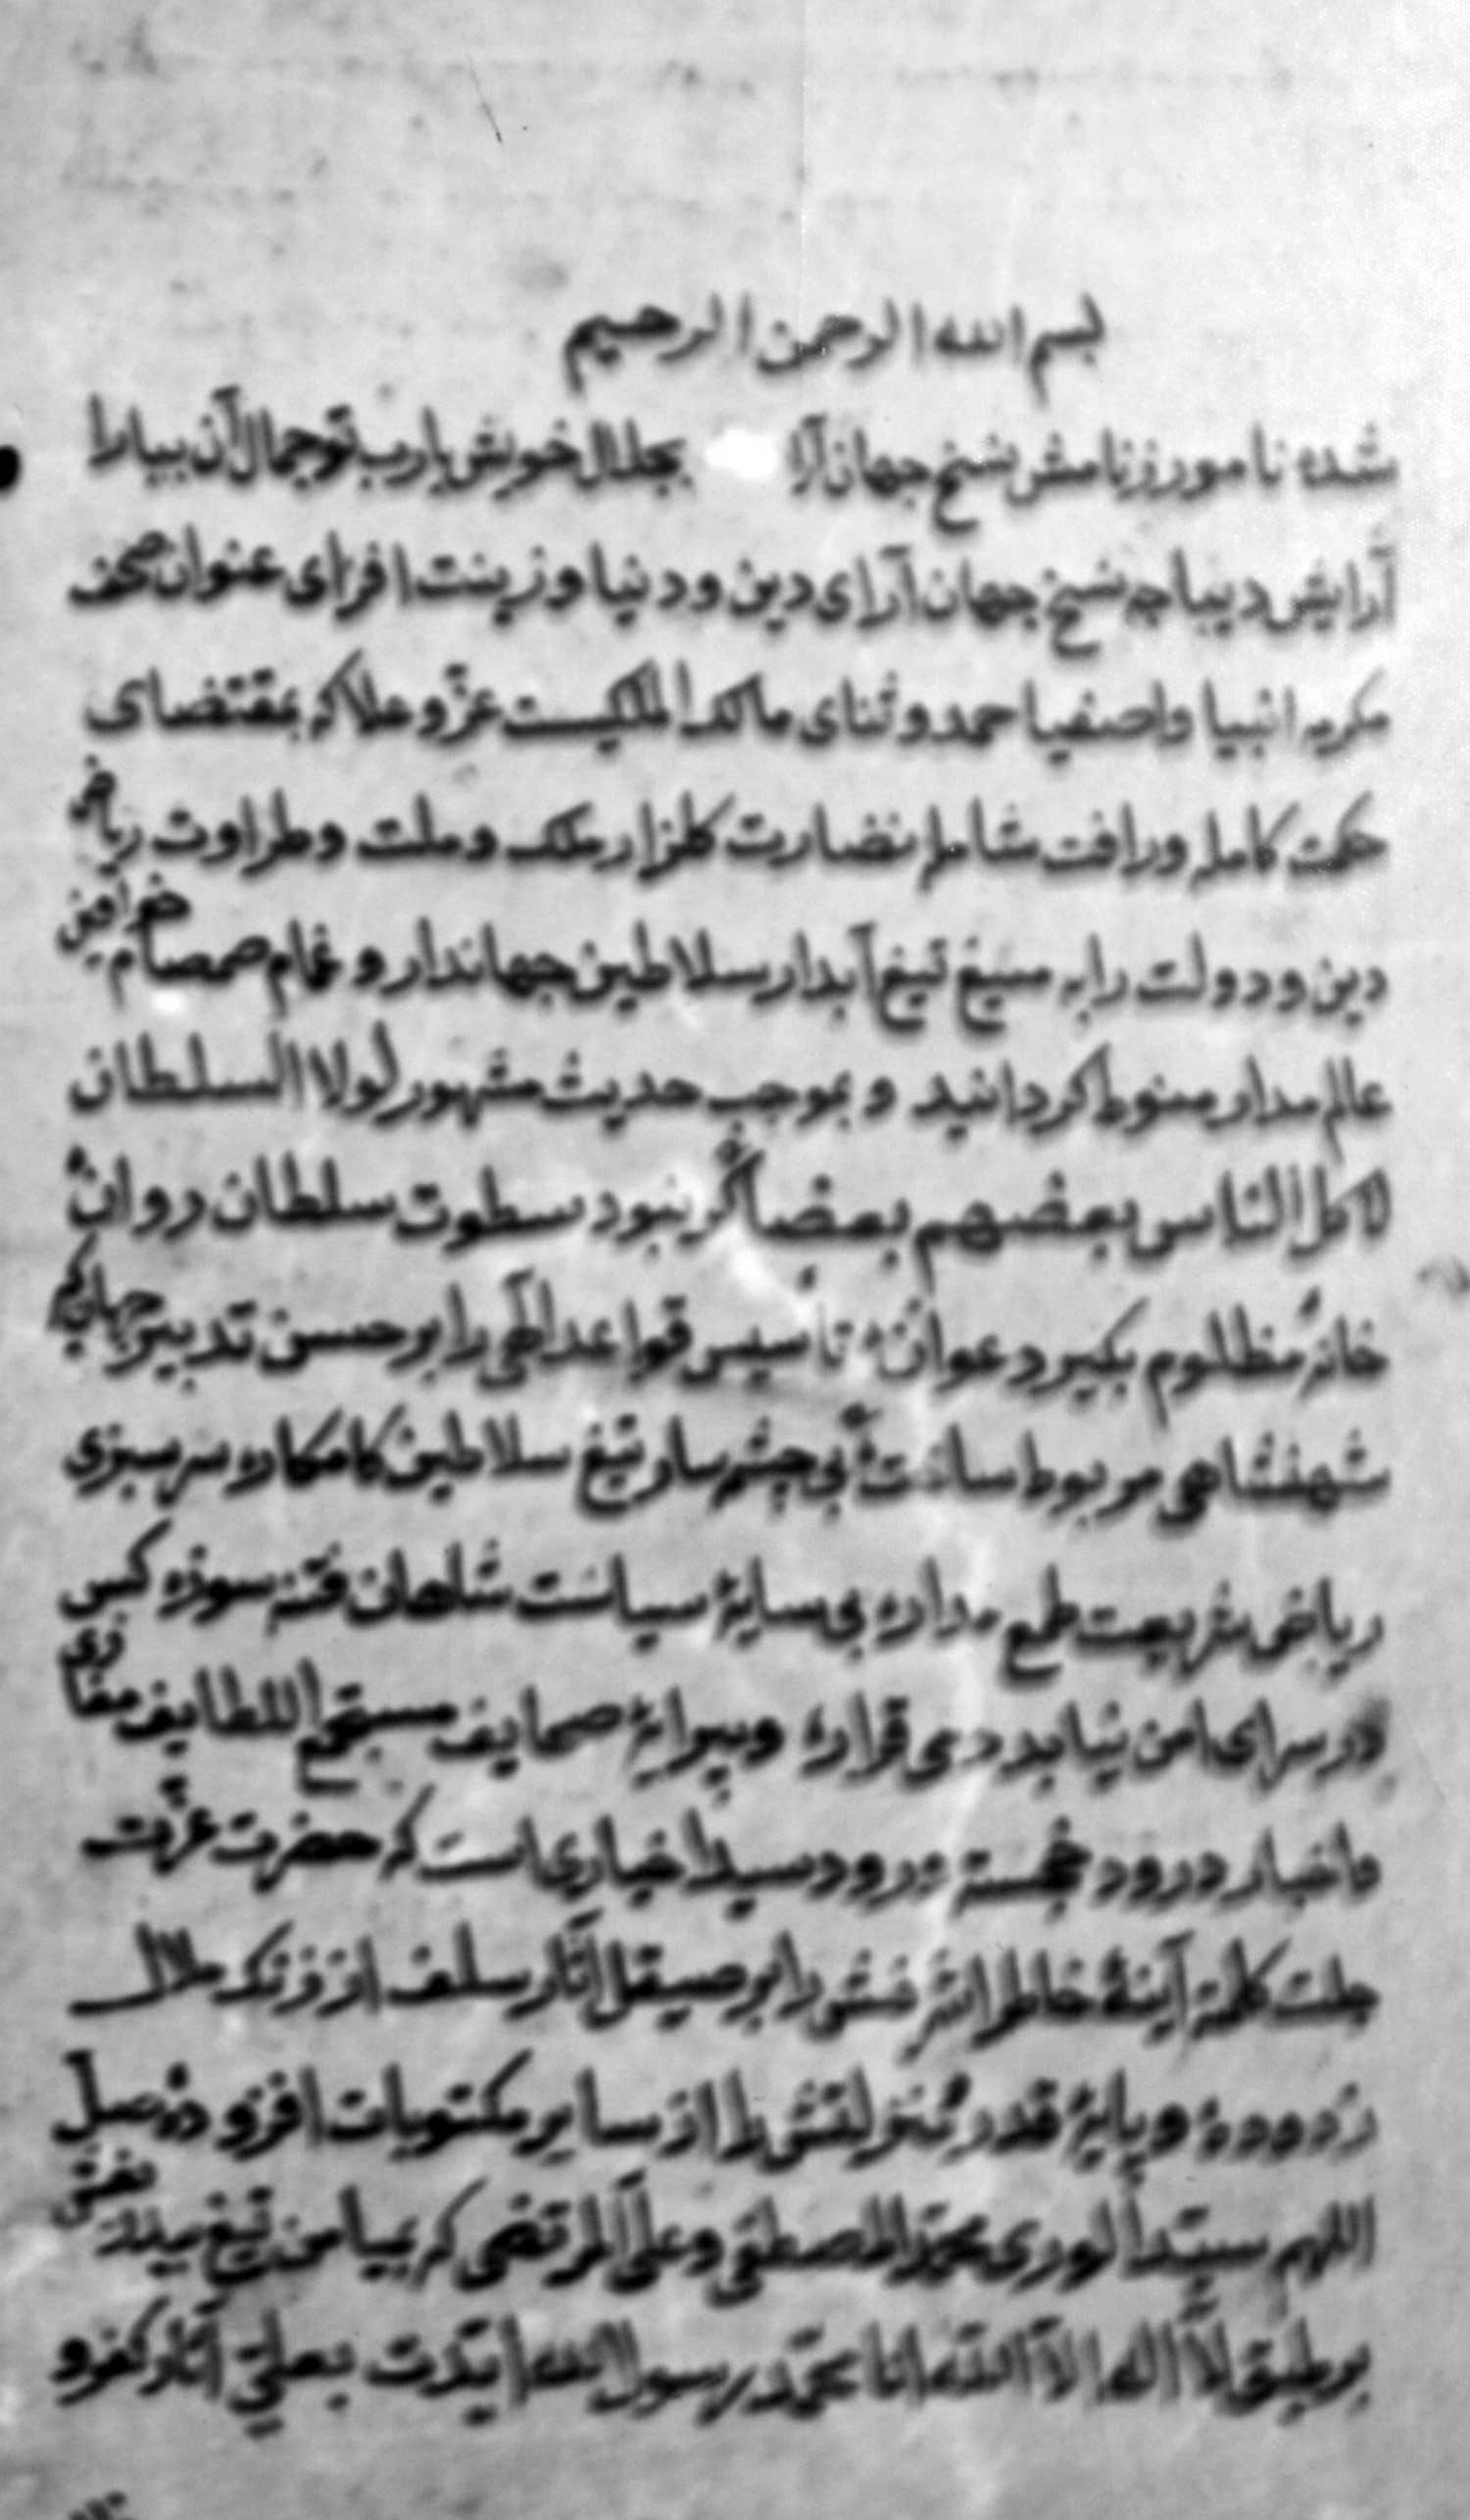 بسم الله الرحمن الرحيم
شده نامور ز نامش نسخ جهان آرا بجلال خویش یارب تو جمال آن بیارا
آرایش دیباچه نسخ جهان آرای دین و دنیا و زینت افزای عنوان صحف
مکرمه انبیا و اصفیا حمد و ثنای مالک الملکیست عز و علا که بمقتضای
حکمت کامله و رافت شامله نضارت کلزار ملک و ملت و طراوت ریاض
دین و دولت را به میغ تیغ آبدار سلاطین جهاندار و غمام صمصام خواقین
عالم مدار منوط کردانید و بموجب حدیث مشهور لولا السلطان
لاکل الناس بعضهم بعضا کر نبود سطوت سلطان روان
خانهٔ مظلوم بکیرد عوان تاسیس قواعد الهی را بر حسن تدبیر جهان
شهنشاهی مربوط ساخت بی چشمه سار تیغ سلاطین کامکار سر سبزی
ریاض شریعت طمع مدار بی سایهٔ سیاست شاهان فتنه سوز کس
در سرای امن نیابد دمی قرار و پیرایهٔ صحایف مستجمع اللطایف مغازی
و اخبار درود خجسته ورود سید اخیاری است که حضرت عزت
جلت کلمته آینهٔ خاطر انور را به صیقل آثار سلف از زنک ملال
زدوده و پایهٔ قدر منزلتش را از سایر مکتوبات افزوده صل
اللهم سید الوری محمد المصطفی و علی المرتضی که بمیامن تیغ بیدریغش
بر طبق لا اله الا الله انا محمد رسول الله ایدت بعلی آثار کفر و